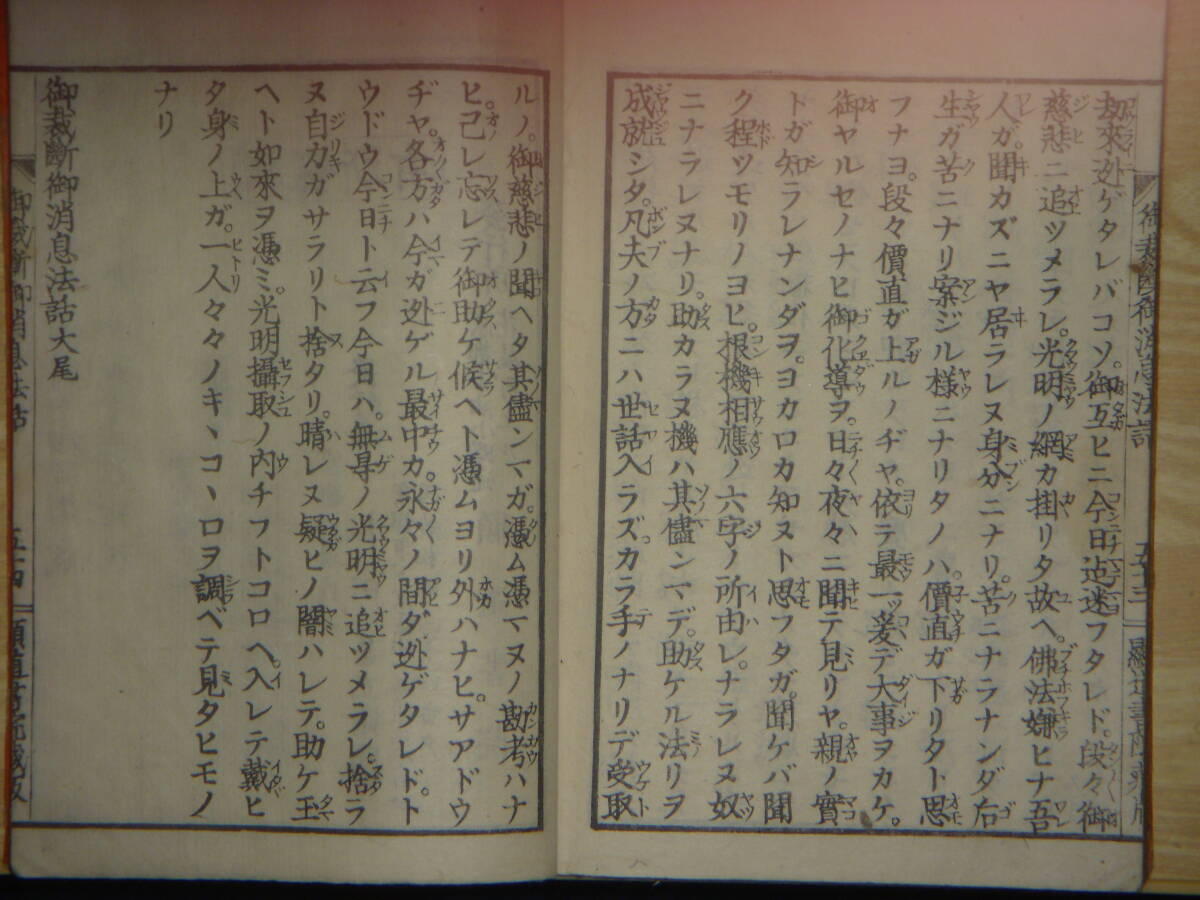 劫來迯ゲタレバコソ。御互ヒニ今日迠迷フタレド。段々御
慈悲ニ追ツメラレ。光明ノ網カ掛リタ故ヘ。佛法嫌ヒナ吾
人ガ。聞カズニヤ居ラレヌ身分ニナリ。苦ニナラナンダ后
生ガ苦ニナリ案ジル様ニナリタノハ。價直ガ下リタト思
フナヨ。段々價直ガ上ルノヂヤ。依テ最一ッ爰デ大事ヲカケ。
御ヤルセノナヒ御化導ヲ。日々夜々ニ聞テ見リヤ。親ノ實
トガ知ラレナンダヲ。ヨカロカ知ヌト思フタガ。聞ケバ聞
ク程ツモリノヨヒ。根機相應ノ六字ノ所由レ。ナラレヌ奴
ニナラレヌナリ。助カラヌ機ハ其儘ンマデ。助ケル法リヲ
成就シタ。凡夫ノ方ニハ世話入ラズカラ手ノナリデ受取
御裁斷御消息法話 五十三 顯道書院藏版
ルノ。御慈悲ノ聞ヘタ其儘ンマガ。憑ム憑マヌノ勘考ハナ
ヒ。己レ忘レテ御助ケ候ヘト憑ムヨリ外ハナヒ。サアドウ
ヂヤ。各方ハ今ガ迯ゲル最中カ。永々ノ間ダ迯ゲタレド。ト
ウドウ今日ト云フ今日ハ。無㝵ノ光明ニ追ツメラレ。捨ラ
ヌ自力ガサラリト捨タリ。晴レヌ疑ヒノ闇ハレテ。助ケ玉
ヘト如來ヲ憑ミ。光明攝取ノ內チフトコロヘ。入レテ戴ヒ
タ身ノ上ガ。一人々々ノキヽコヽロヲ調ベテ見タヒモノ
ナリ
御裁斷御消息法話大尾
御裁斷御消息法話 五十四 顯道書院藏版